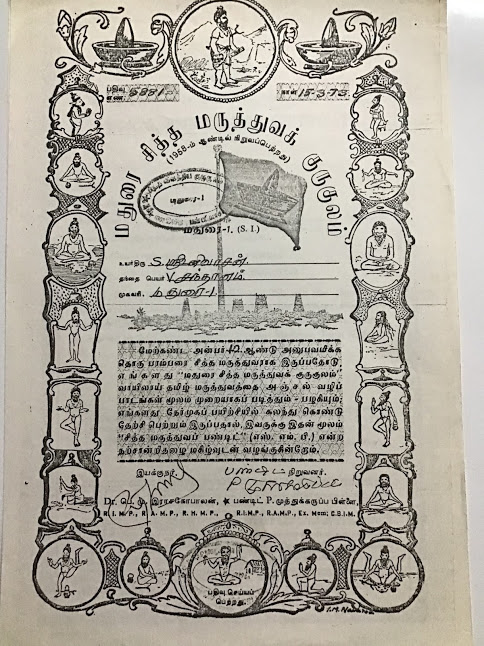 பதிவு எண் 5331
நாள் 15-3-73
மதுரை சித்த மருத்துவக் குருகுலம்
(1958-ம் ஆண்டில் நிறுவப்பெற்றது)
மதுரை-1
மதுரை-1. (S. I.)
உயர்திரு S. ஸ்ரீனிவாசன்
தந்தை பெயர் V. சந்தானம்
முகவரி, மதுரை-1
மேற்கண்ட அன்பர் 42 ஆண்டு அனுபவமிக்க
தொகு பரம்பரை சித்த மருத்துவராக இருப்பதோடு
எங்களது "மதுரை சித்த மருத்துவக் குருகுலம்
வாயிலாய் தமிழ் மருத்துவத்தை அஞ்சல் வழிப்
பாடங்கள் மூலம் முறையாகப் படித்தும் - பழகியும்;
எங்களது நேர்முகப் பயிற்சியில் கலந்து கொண்டு
தேர்ச்சி பெற்றும் இருப்பதால், இவருக்கு இதன் மூலம்
"சித்த மருத்துவப் பண்டிட்" (எஸ். எம். பி,) என்ற
நற்சான்றிதழை மகிழ்வுடன் வழங்குகின்றோம்.
இயக்குநர், நிறுவனர்,
Dr. பெ. மு. இராசகோபாலன், பண்டிட் P. முத்துக்கருப்ப பிள்ளை,
R.I.M.P., R.A.M.P., R.H.M.P., R.I.M.P., R.A.M.P., Ex. Mem: C.B.I.M.
பதிவு செய்யப்
பெற்றது.